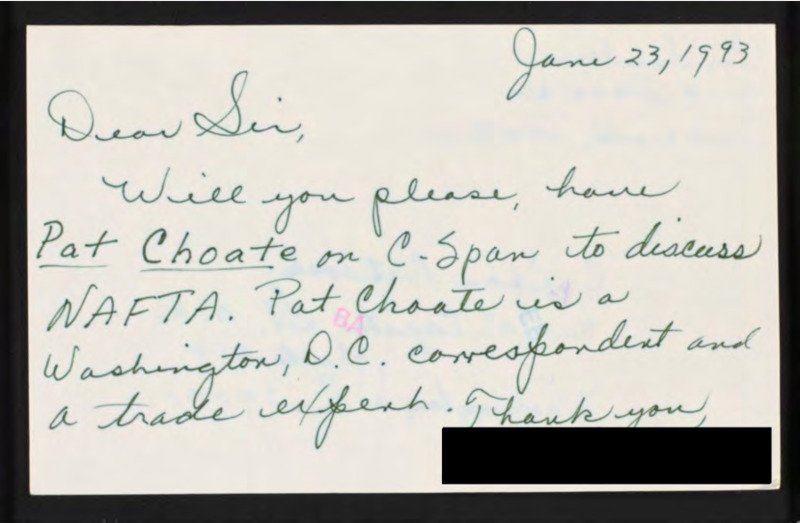 June 23, 1993
Dear Sir,
Will you please, have
Pat Choate on C-Span to discuss
NAFTA. Pat Choate is a
Washington, D.C. correspondent and
a trade expert. Thank you,
BA